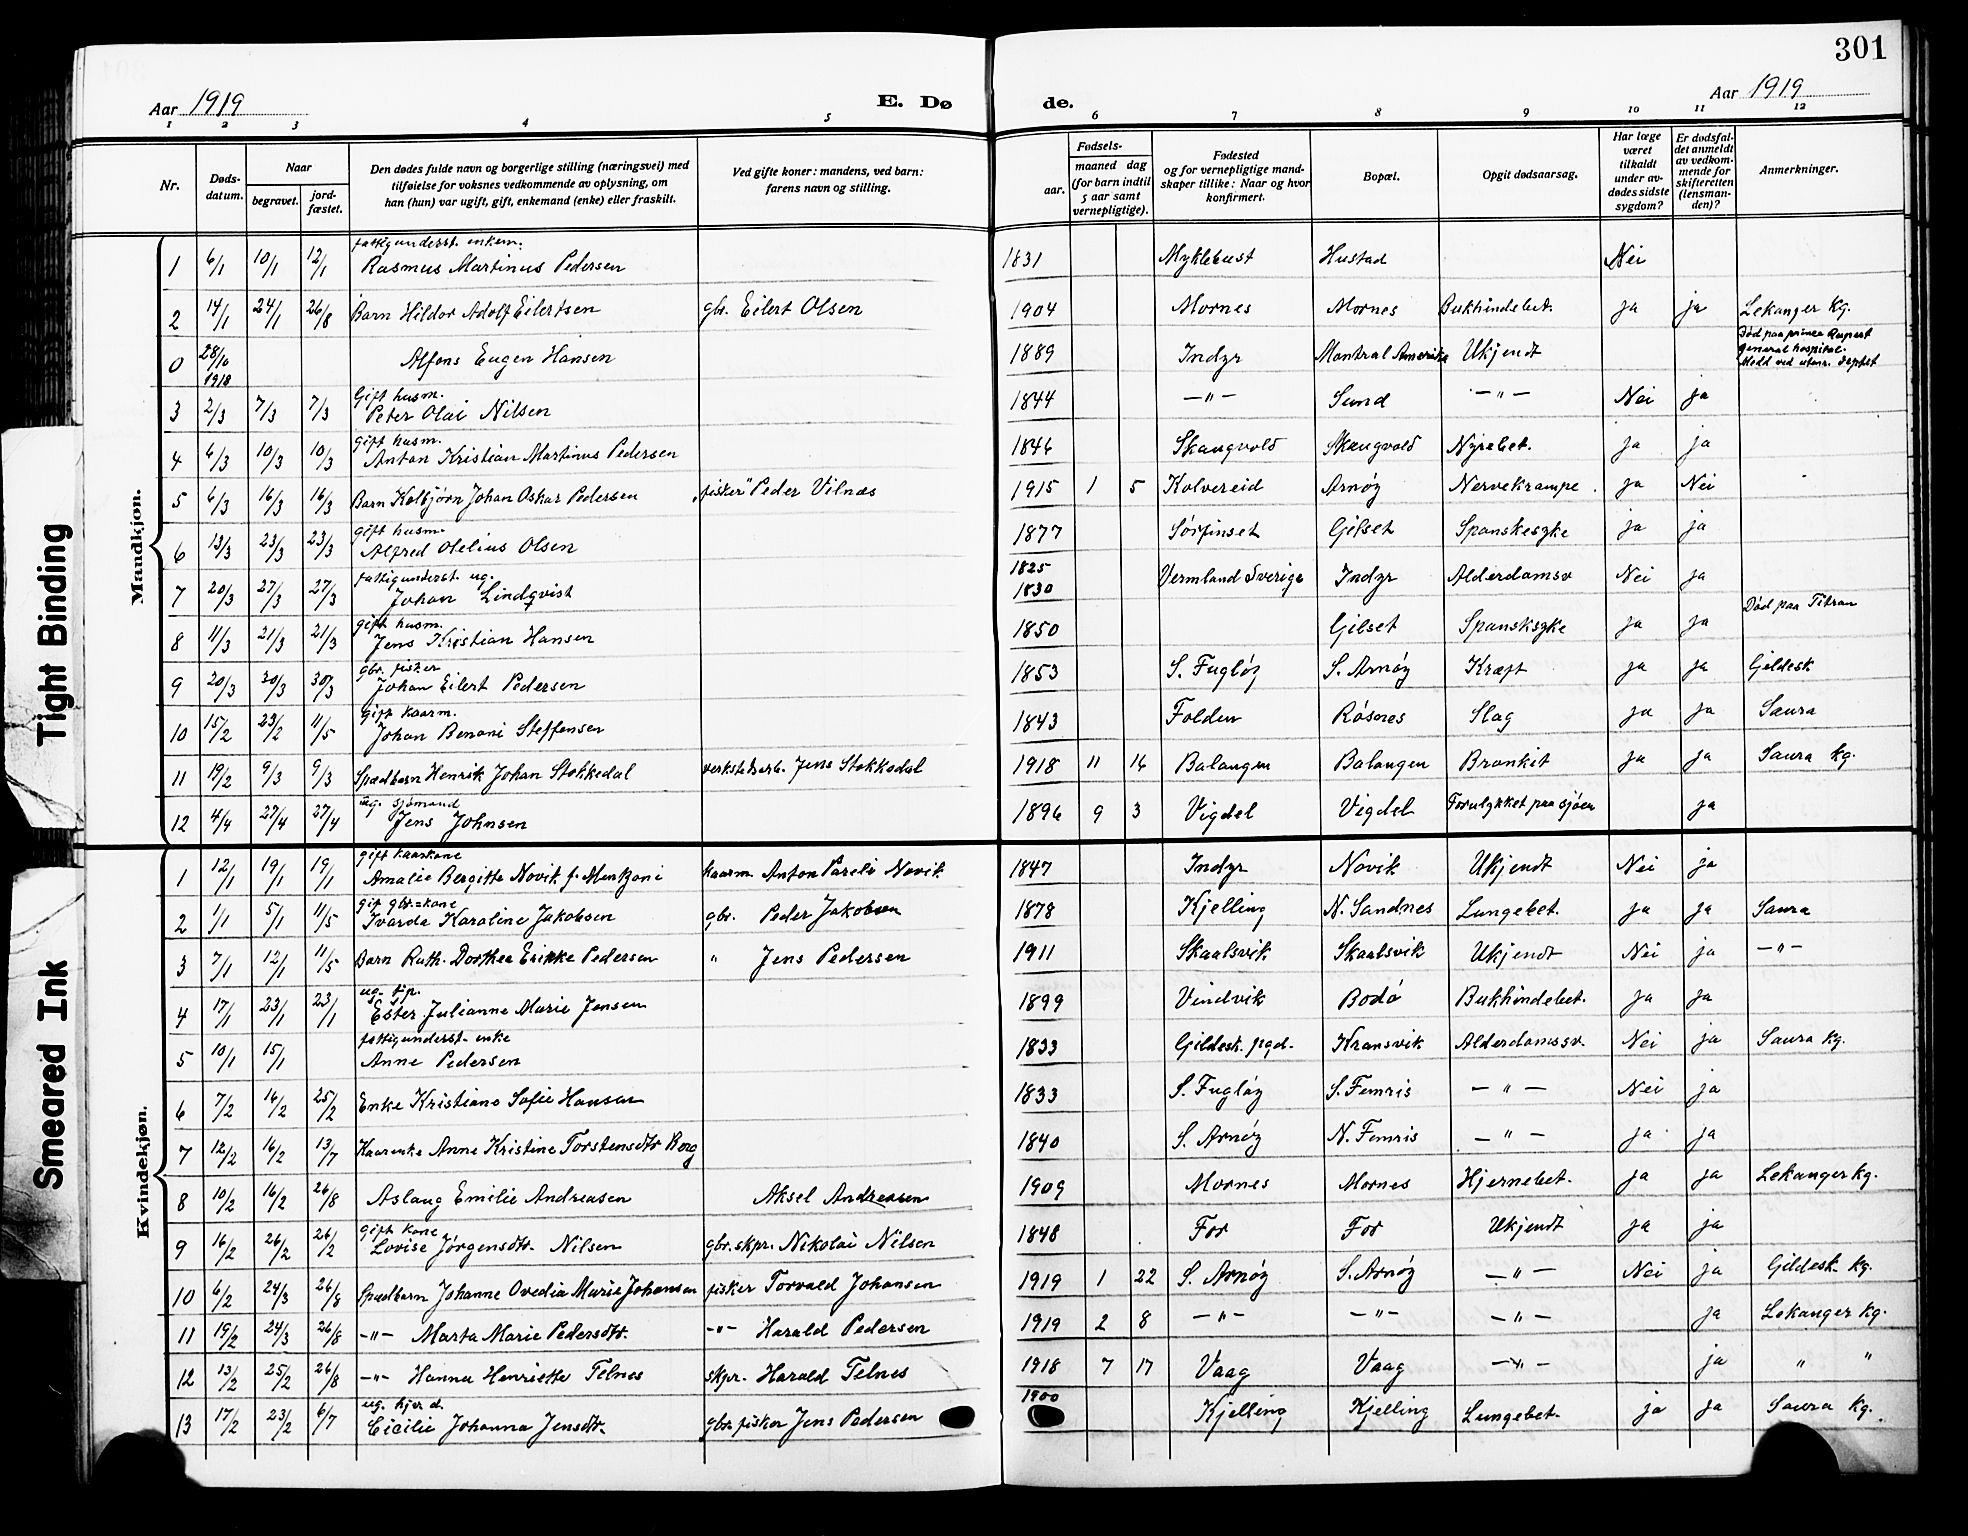 301
Aar 1919
E. Dø
de.
Aar 1919
1 2 3 4 5 6 7 8 9 10 11 12
Nr.
Døds-
datum.
Naar
begravet.
jord-
fæstet.
Den dødes fulde navn og borgerlige stilling (næringsvei) med
tilføielse for voksnes vedkommende av oplysning, om
han (hun) var ugift, gift, enkemand (enke) eller fraskilt.
Ved gifte koner: mandens, ved barn:
farens navn og stilling.
Fødsels-
aar.
maaned dag
(for barn indtil
5 aar samt
vernepligtige).
Fødested
og for vernepligtige mand-
skaper tillike: Naar og hvor
konfirmert.
Bopæl.
Opgit dødsaarsag.
Har læge
været
tilkaldt
under av-
dødes sidste
sygdom?
Er dødsfal-
det anmeldt
av vedkom-
mende for
skifteretten
(lensman-
den)?
Anmerkninger.
Mandkjøn.
fattigunderst. enkem.
1 6/1 10/1 12/1 Rasmus Martinus Pedersen 1831 Myklebust Hustad Nei
2 14/1 24/1 26/8 Barn Hildor Adolf Eilertsen gbr. Eilert Olsen 1904 Mornes Mornes Bukhindebet. ja ja Lekanger kg.
0 28/10 1918 Alfons Eugen Hansen 1889 Indyr Montral Amerika Ukjendt Død paa prince Rupert
general hospital.
Medd ved utenr. deptet
Gift husm.
3 2/3 7/3 7/3 Peter Olai Nilsen 1844 —"— Sund —"— Nei ja
gift husm.
4 6/3 10/3 10/3 Anton Kristian Martinus Pedersen 1846 Skaugvold Skaugvold Nyrebet. ja ja
5 6/3 16/3 16/3 Barn Kolbjørn Johan Oskar Pedersen "fisker" Peder Vilnæs 1915 1 5 Kolvereid Arnøy Nervekrampe. ja Nei
gift husm.
6 13/3 23/3 23/3 Alfred Otelius Olsen 1877 Sørfinset Gilset Spanskesyke ja ja
fattigunderst. ug.
7 20/3 27/3 27/3 Johan Lindqvist 1825 1830 Vermland Sverige Indyr Alderdomsv Nei ja
gift husm.
8 11/3 21/3 21/3 Jens Kristian Hansen 1850 Gilset Spansksyke ja ja Død paa Titran
gbr. fisker
9 20/3 30/3 30/3 Johan Eilert Pedersen 1853 S. Fugløy S. Arnøy Kræft ja ja Gildesk
gift kaarm.
10 15/2 23/2 11/5 Johan Benoni Steffensen 1843 Folden Røsnes Slag ja ja Saura
11 19/2 9/3 9/3 Spædbarn Henrik Johan Stokkedal verkstedsarb. Jens Stokkedal 1918 11 16 Balangen Balangen Bronkit ja ja Saura kg.
ug. sjømand
12 4/4 27/4 27/4 Jens Johnsen 1896 9 3 Vigdel Vigdel Forulykket paa sjøen ja
Kvindekjøn.
gift kaarkone
1 12/1 19/1 19/1 Amalie Bergitte Novik f. Menkzoni kaarm. Anton Pareli Novik 1847 Indyr Novik Ukjendt Nei ja
gif gbr.=kone
2 1/1 5/1 11/5 Ivarda Karoline Jakobsen gbr. Peder Jakobsen 1878 Kjelling N. Sandnes Lungebet. ja ja Saura
3 7/1 12/1 11/5 Barn Ruth. Dorthea Erikke Pedersen " Jens Pedersen 1911 Skaalsvik Skaalsvik Ukjendt Nei ja —"—
ug. tjp.
4 17/1 23/1 23/1 Ester Julianne Marie Jensen 1899 Vindvik Bodø Bukhindebet. ja ja
fattigunderst. enke
5 10/1 15/1 Anne Pedersen 1833 Gildesk. pgd. Kransvik Alderdomssv. Nei ja Saura kg.
6 7/2 16/2 25/2 Enke Kristiane Sofie Hansen 1833 S. Fugløy S. Femris —"— Nei ja
7 12/2 16/2 13/7 Kaarenke Anne Kristine Torstensdtr Borg 1840 S. Arnøy N. Femris —"— ja ja
8 10/2 16/2 26/8 Aslaug Emilie Andreasen Aksel Andreasen 1909 Mornes Mornes Hjernebet. ja ja Lekanger kg.
gift kone
9 16/2 26/2 26/2 Lovise Jørgensdtr. Nilsen gbr. skpr. Nikolai Nilsen 1848 For For Ukjendt ja ja
10 6/2 24/3 26/8 Spædbarn Johanne Ovedia Marie Johansen fisker Torvald Johansen 1919 1 22 S. Arnøy S. Arnøy —"— Nei ja Gildesk. kg.
11 19/2 24/3 26/8 —"— Marta Marie Pedersdtr. —"— Harald Pedersen 1919 2 8 —"— —"— —"— ja Lekanger kg.
12 13/2 25/2 26/8 —"— Hanna Henriette Telnes skpr. Harald Telnes 1918 7 17 Vaag Vaag —"— ja " "
ug. hjem. d.
13 17/2 23/2 6/7 Cicilie Johanna Jensdtr. gbr. fisker Jens Pedersen 1900 Kjelling Kjelling Lungebet. ja ja Saura kg.
Tight Binding
Smeared Ink